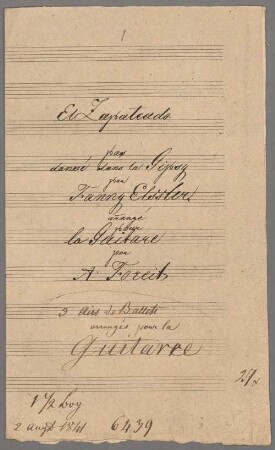 1
El Zapateado
pas
dansé dans la Gipsy
par
Fanny Elssler
arrangé
pour
la Guitare
par
A Foreit
3 airs de Ballets
arrangés pour la
Guitarre
1 1/2 bog
2 6439